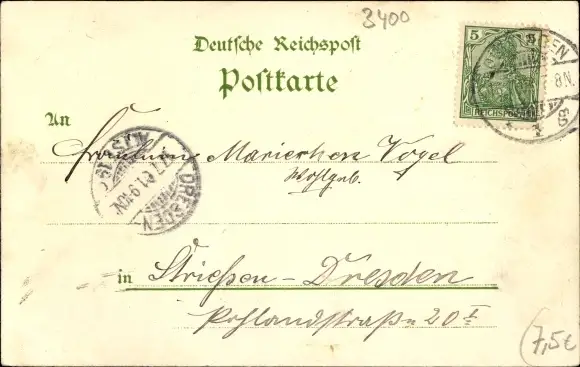 3400
Deutsche Reichspost
Postkarte
5
REICHSPOST
8N.
An
Fräulein Marierchen Vogel
Wohlgeb.
DRESDEN
in Strießen - Dresden
Pohlandstraße 20 I
7,5€